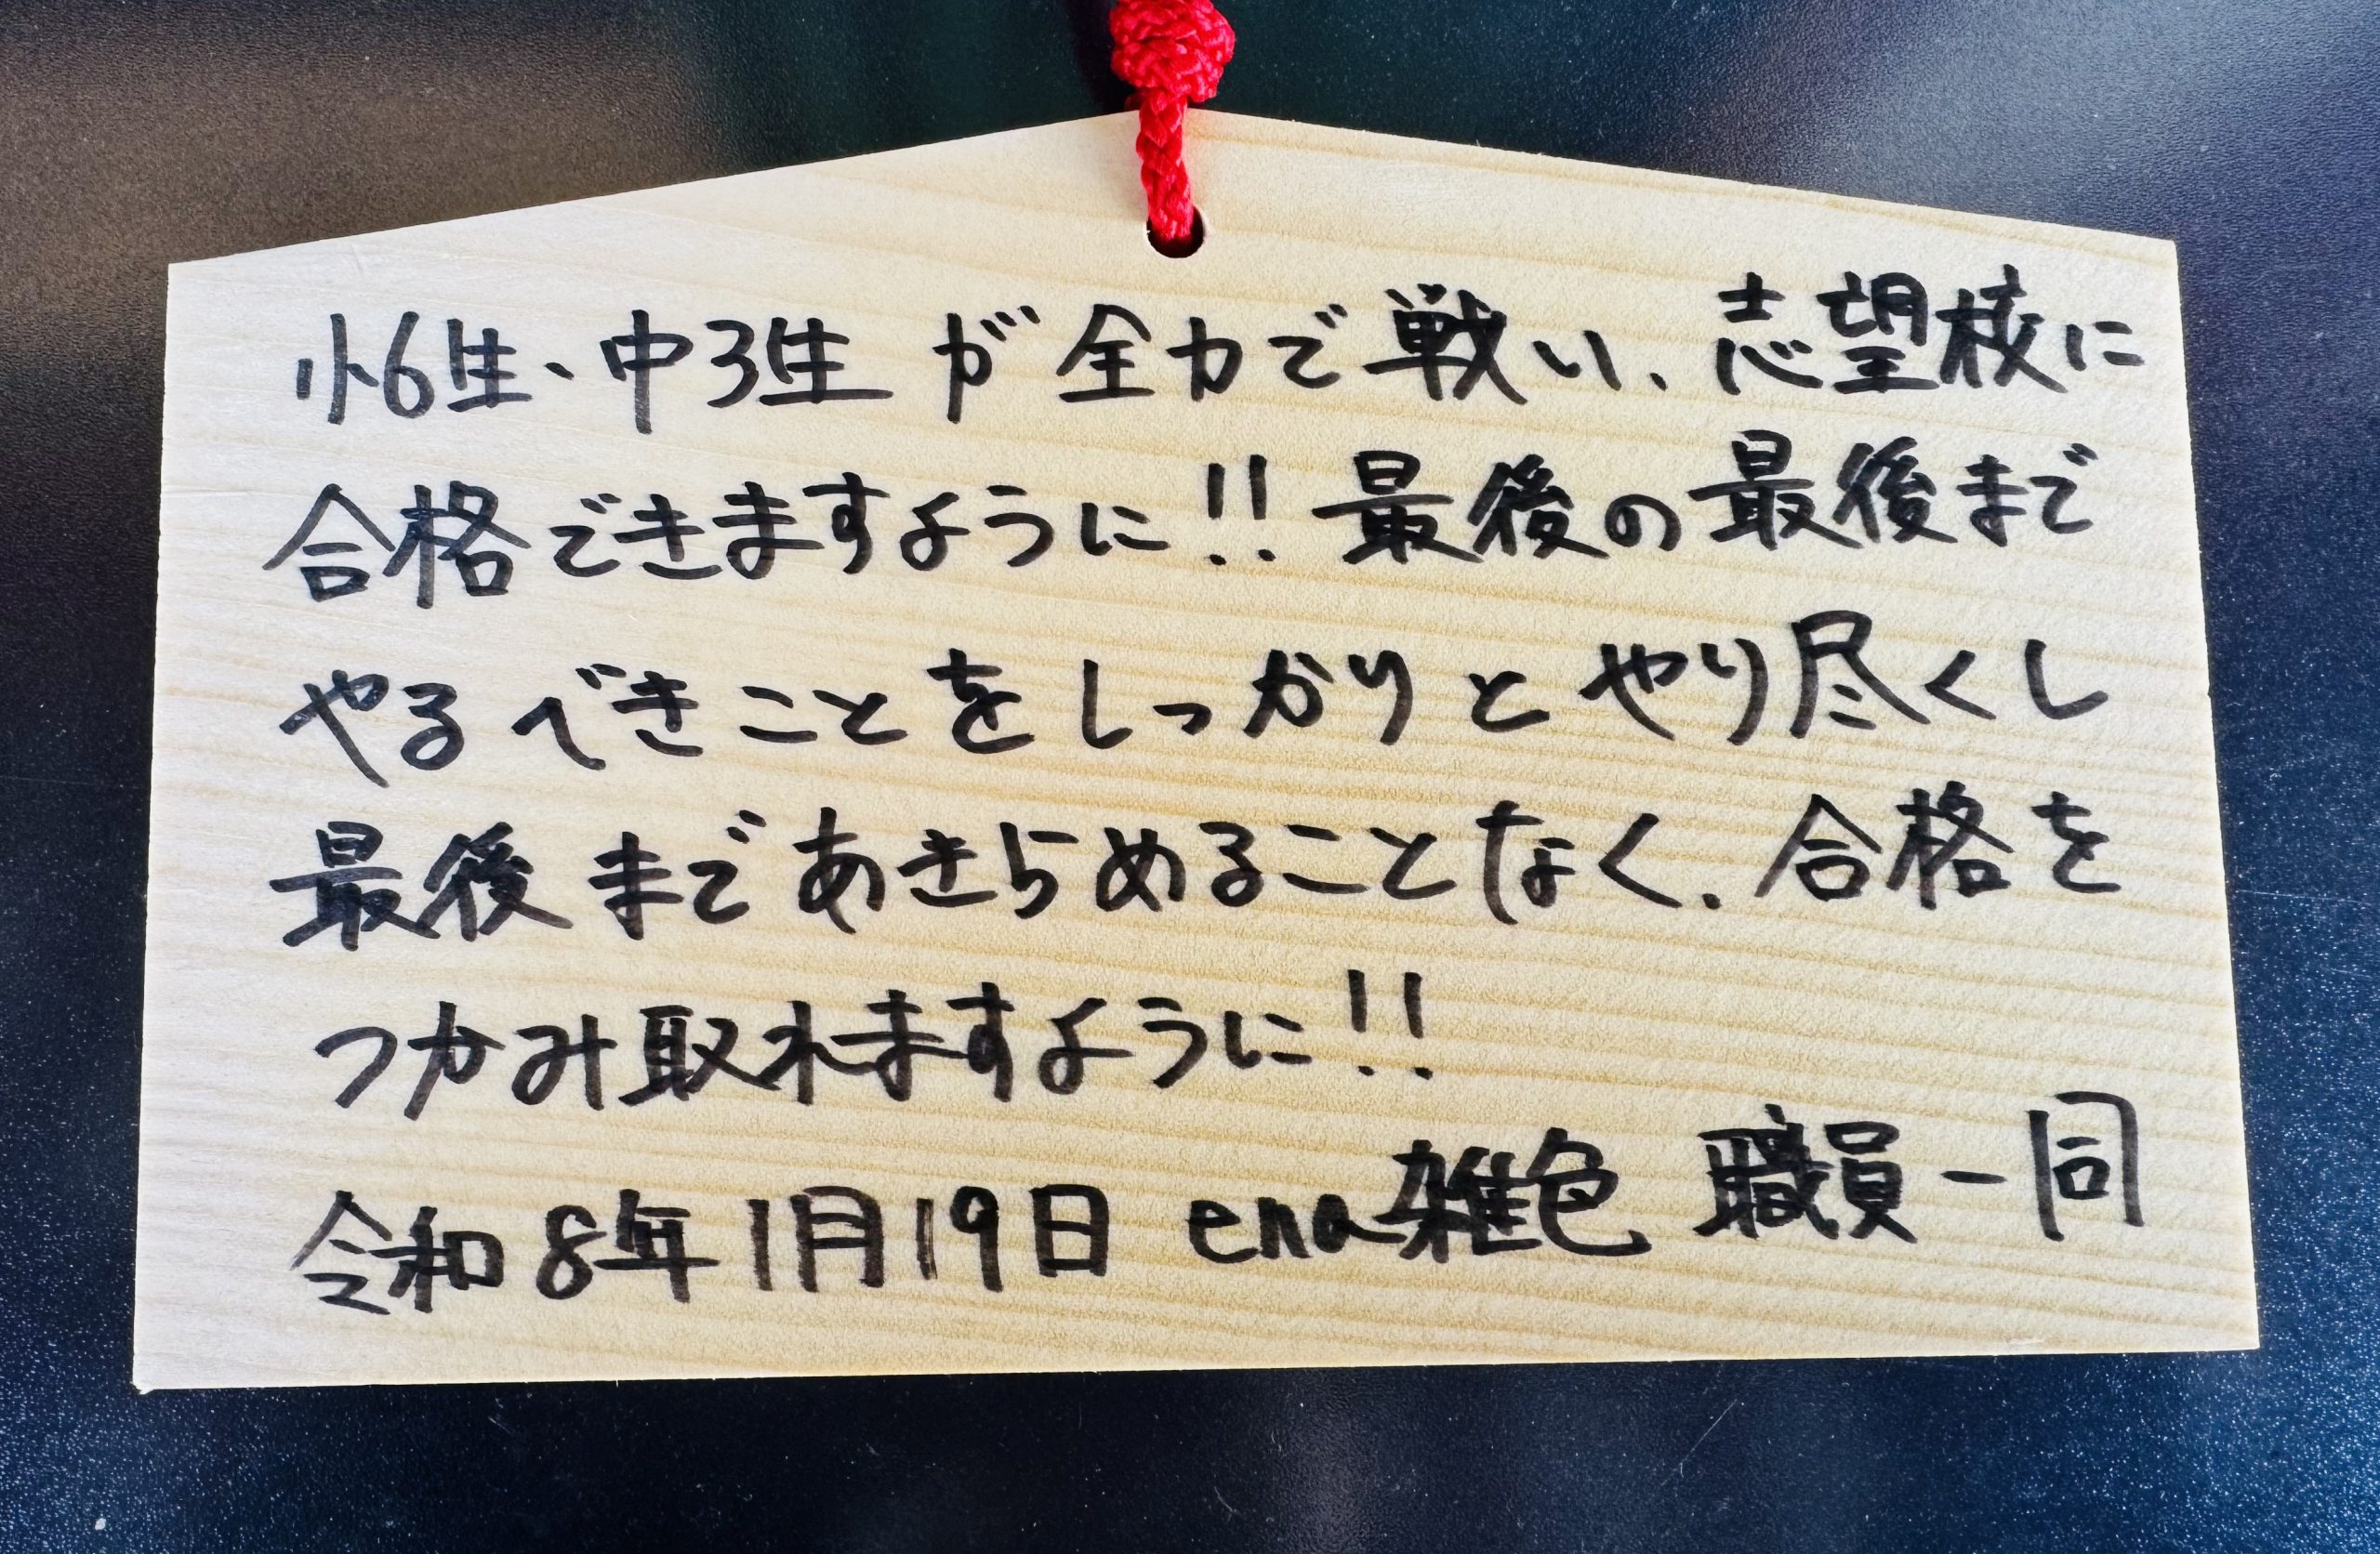 小6生、中3生が全力で戦い、志望校に
合格できますように!! 最後の最後まで
やるべきことをしっかりとやり尽くし
最後まであきらめることなく、合格を
つかみ取れますように!!
令和8年1月19日 ena雑色 職員一同